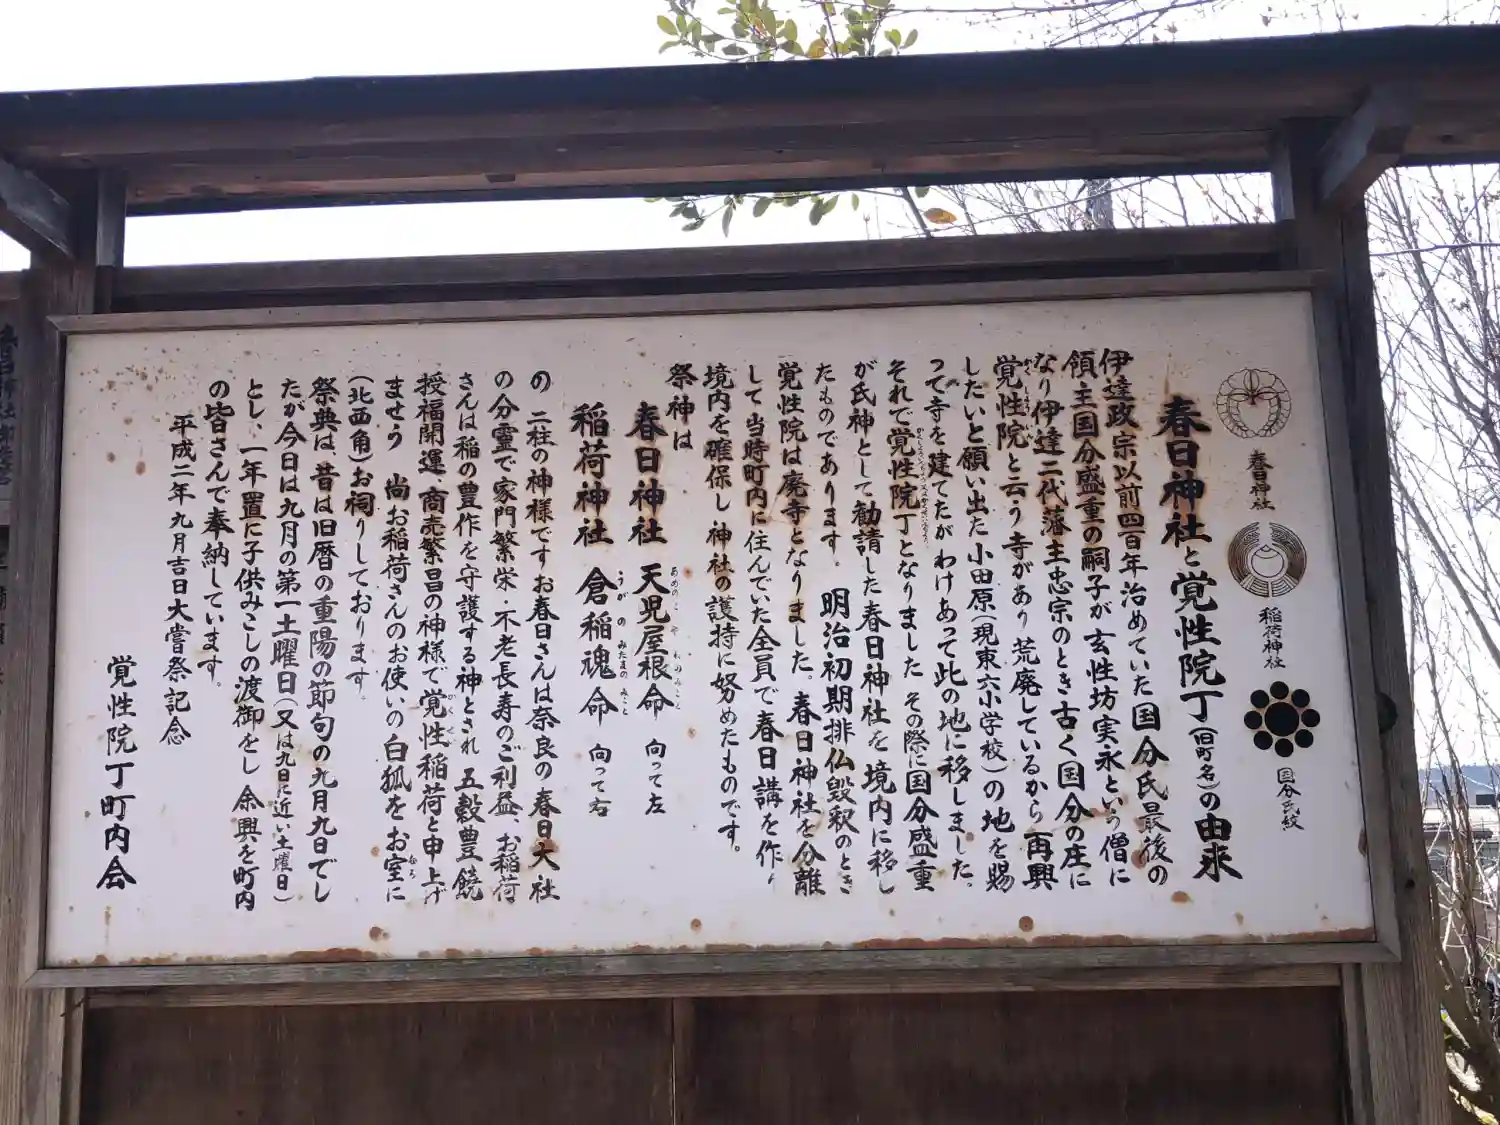 春日神社
稲荷神社
国分氏紋
春日神社と覚性院丁(旧町名)の由来
伊達政宗以前四百年治めていた国分氏最後の
領主国分盛重の嗣子が玄性坊実永という僧に
なり伊達二代藩主忠宗のとき古く国分の庄に
覚性院と云う寺があり 荒廃しているから 再興
したいと願い出た 小田原(現東六小学校)の地を賜
って寺を建てたが わけあって此の地に移しました。
それで覚性院丁となりました その際に国分盛重
が氏神として勧請した春日神社を境内に移し
たものであります。 明治初期排仏毀釈のとき
覚性院は廃寺となりました。春日神社を分離
して当時町内に住んでいた全員で春日講を作り
境内を確保し神社の護持に努めたものです。
祭神は
春日神社 天児屋根命 向って左
あめのこやねのみこと
稲荷神社 倉稲魂命 向って右
うがのみたまのみこと
の 二柱の神様ですお春日さんは奈良の春日大社
の分霊で家門繁栄・不老長寿のご利益、お稲荷
さんは稲の豊作を守護する神とされ 五穀豊饒
授福開運、商売繁昌の神様で覚性稲荷と申上げ
ませう 尚お稲荷さんのお使いの白狐をお室に
(北西角)お祠りしております。
祭典は、昔は旧暦の重陽の節句の九月九日でし
たが今日は九月の第一土曜日(又は九日に近い土曜日)
とし、一年置に子供みこしの渡御をし 余興を町内
の皆さんで奉納しています。
平成二年九月吉日大嘗祭記念
覚性院丁町内会